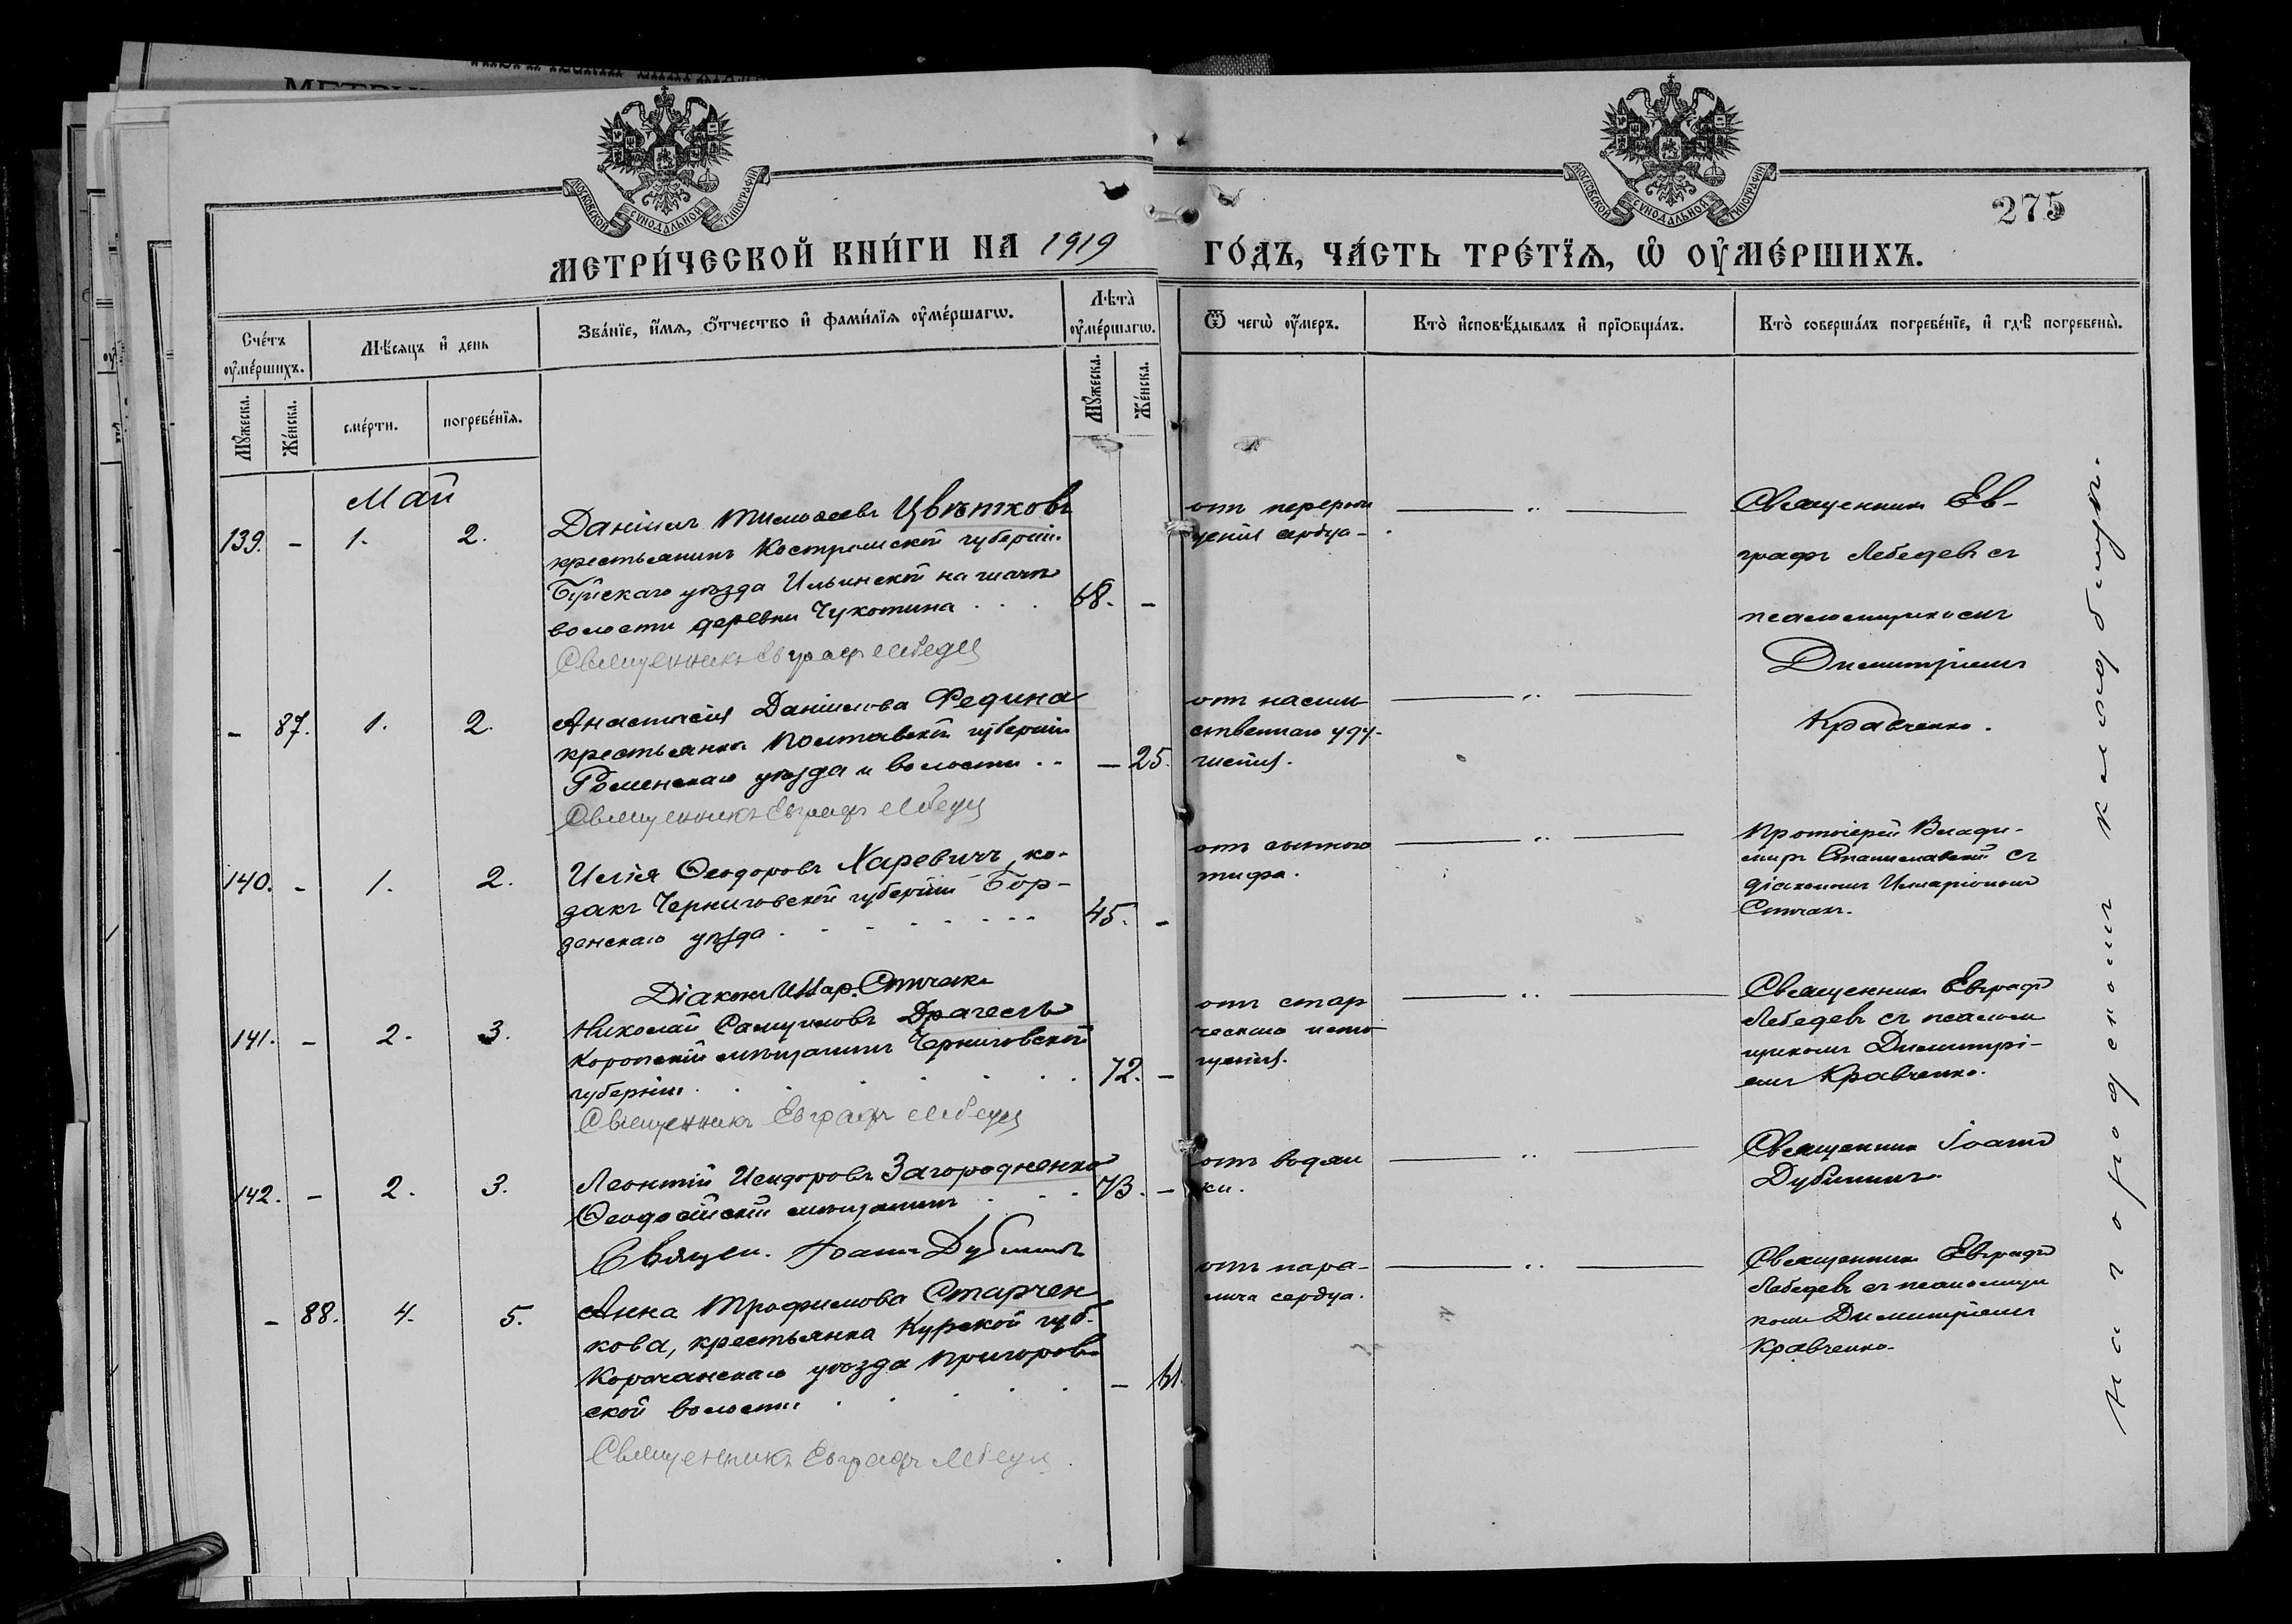 МОСКОВСКОЙ СѴНОДАЛЬНОЙ ТИПОГРАФІИ
МОСКОВСКОЙ СѴНОДАЛЬНОЙ ТИПОГРАФІИ
275
МЕТРИ́ЧЕСКОЙ КНИ́ГИ НА 1919
ГО́ДЪ, ЧА́СТЬ ТРЕ́ТЇѦ, Ѽ ОУ҆МЕ́РШИХЪ.
Сче́тъ оу҆ме́ршихъ.
Мѣ́сяцъ и҆ день
Зва́нїе, и҆́мя, ѻ҆́тчество и҆ фами́лїя оу҆ме́ршагѡ.
Лѣ́та̀ оу҆ме́ршагѡ.
Ѿ чегѡ̀ оу҆́меръ.
Кто̀ и҆сповѣ́дывалъ и҆ прїѡбща́лъ.
Кто̀ соверша́лъ погребе́нїе, и҆ гдѣ̀ погребены̀.
Мꙋ́жеска.
Же́нска.
сме́рти.
погребе́нїя.
Мꙋ́жеска.
Же́нска.
Май
139. - 1. 2.
Даніилъ Тимоѳеевъ Цвѣтковъ
крестьянинъ Костромской губерніи
Буйскаго уѣзда Ильинской
волости деревни Чухотина . . . 68. -
Священникъ Евграфъ Лебедев
отъ
сердца -
Священникъ Ев-
графъ Лебедевъ съ
псаломщикомъ
Димитріемъ
Кравченко.
- 87. 1. 2.
Анастасія Даніилова Федина
крестьянка Полтавской губерніи
Роменскаго уѣзда и волости . . - 25.
Священникъ Евграфъ Лебедев
отъ насиль
ственнаго уду-
шенія.
140. - 1. 2.
Илія Ѳеодоровъ Харевичъ, ко-
закъ Черниговской губерніи Бор-
зенскаго уѣзда . . . . . . . 45. -
Діаконъ Илар. Стичак
отъ сыпного
тифа.
Протоіерей Влади-
міръ Станиславскій съ
діакономъ Иларіономъ
141. - 2. 3.
Николай Самуиловъ Драгель
Коропскій мѣщанинъ Черниговской
губерніи . . . . . . . 72. -
Священникъ Евграфъ Лебедев
отъ стар
ческаго исто
щенія.
Священникъ Евграфъ
Лебедевъ съ псалом
щикомъ Димитрі-
емъ Кравченко.
142. - 2. 3.
Леонтій Исидоровъ Загородненко
Ѳеодосійскій мѣщанинъ . . . 73. -
Священ. Іоаннъ Дубининъ
отъ водян
ки.
Священникъ Іоаннъ
Дубининъ.
- 88. 4. 5.
Анна Трофимова Старчен
кова, крестьянка Курской губ.
Корочанскаго уѣзда Пригоров
ской волости . . . . - 61.
Священникъ Евграфъ Лебедев
отъ пара-
лича сердца.
Священникъ Евграфъ
Лебедевъ съ псаломщи
комъ Димитріемъ
Кравченко.
На городскомъ кладбищѣ.